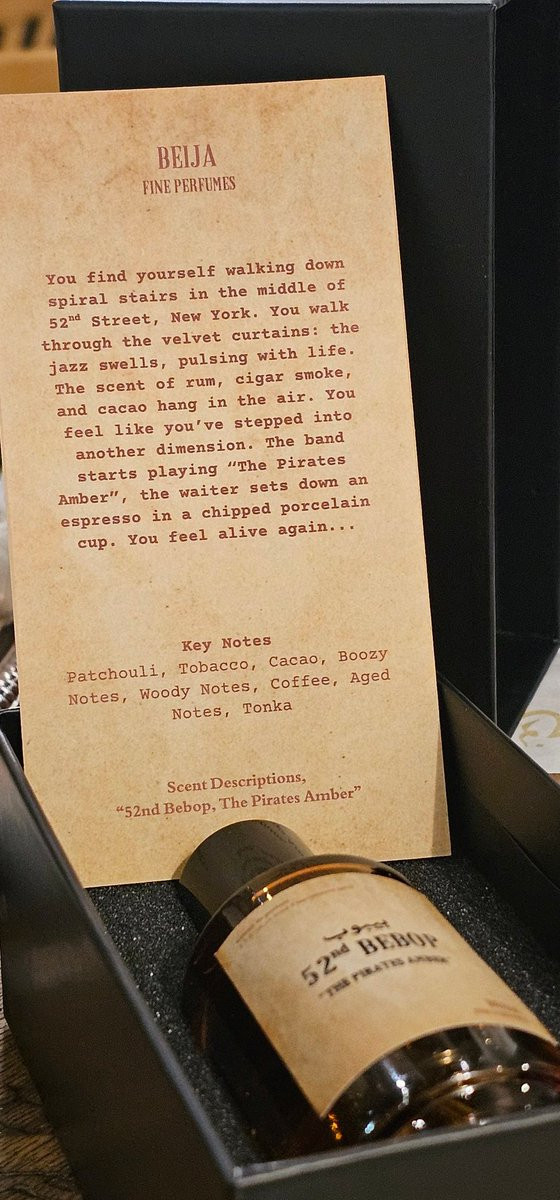 BEIJA
FINE PERFUMES
You find yourself walking down
spiral stairs in the middle of
52nd Street, New York. You walk
through the velvet curtains: the
jazz swells, pulsing with life.
The scent of rum, cigar smoke,
and cacao hang in the air. You
feel like you’ve stepped into
another dimension. The band
starts playing “The Pirates
Amber”, the waiter sets down an
espresso in a chipped porcelain
cup. You feel alive again...
Key Notes
Patchouli, Tobacco, Cacao, Boozy
Notes, Woody Notes, Coffee, Aged
Notes, Tonka
Scent Descriptions,
“52nd Bebop, The Pirates Amber”
52nd BEBOP
"THE PIRATES AMBER"